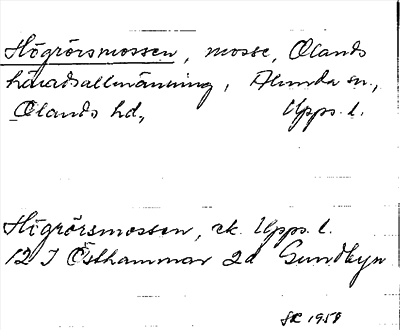 Högrörsmossen, mosse, Olands
häradsallmänning, Alunda sn,
Olands hd, Upps. l.
Högrörsmossen, ek. Upps. l.
12 I Östhammar 2d Sundbyn
1958